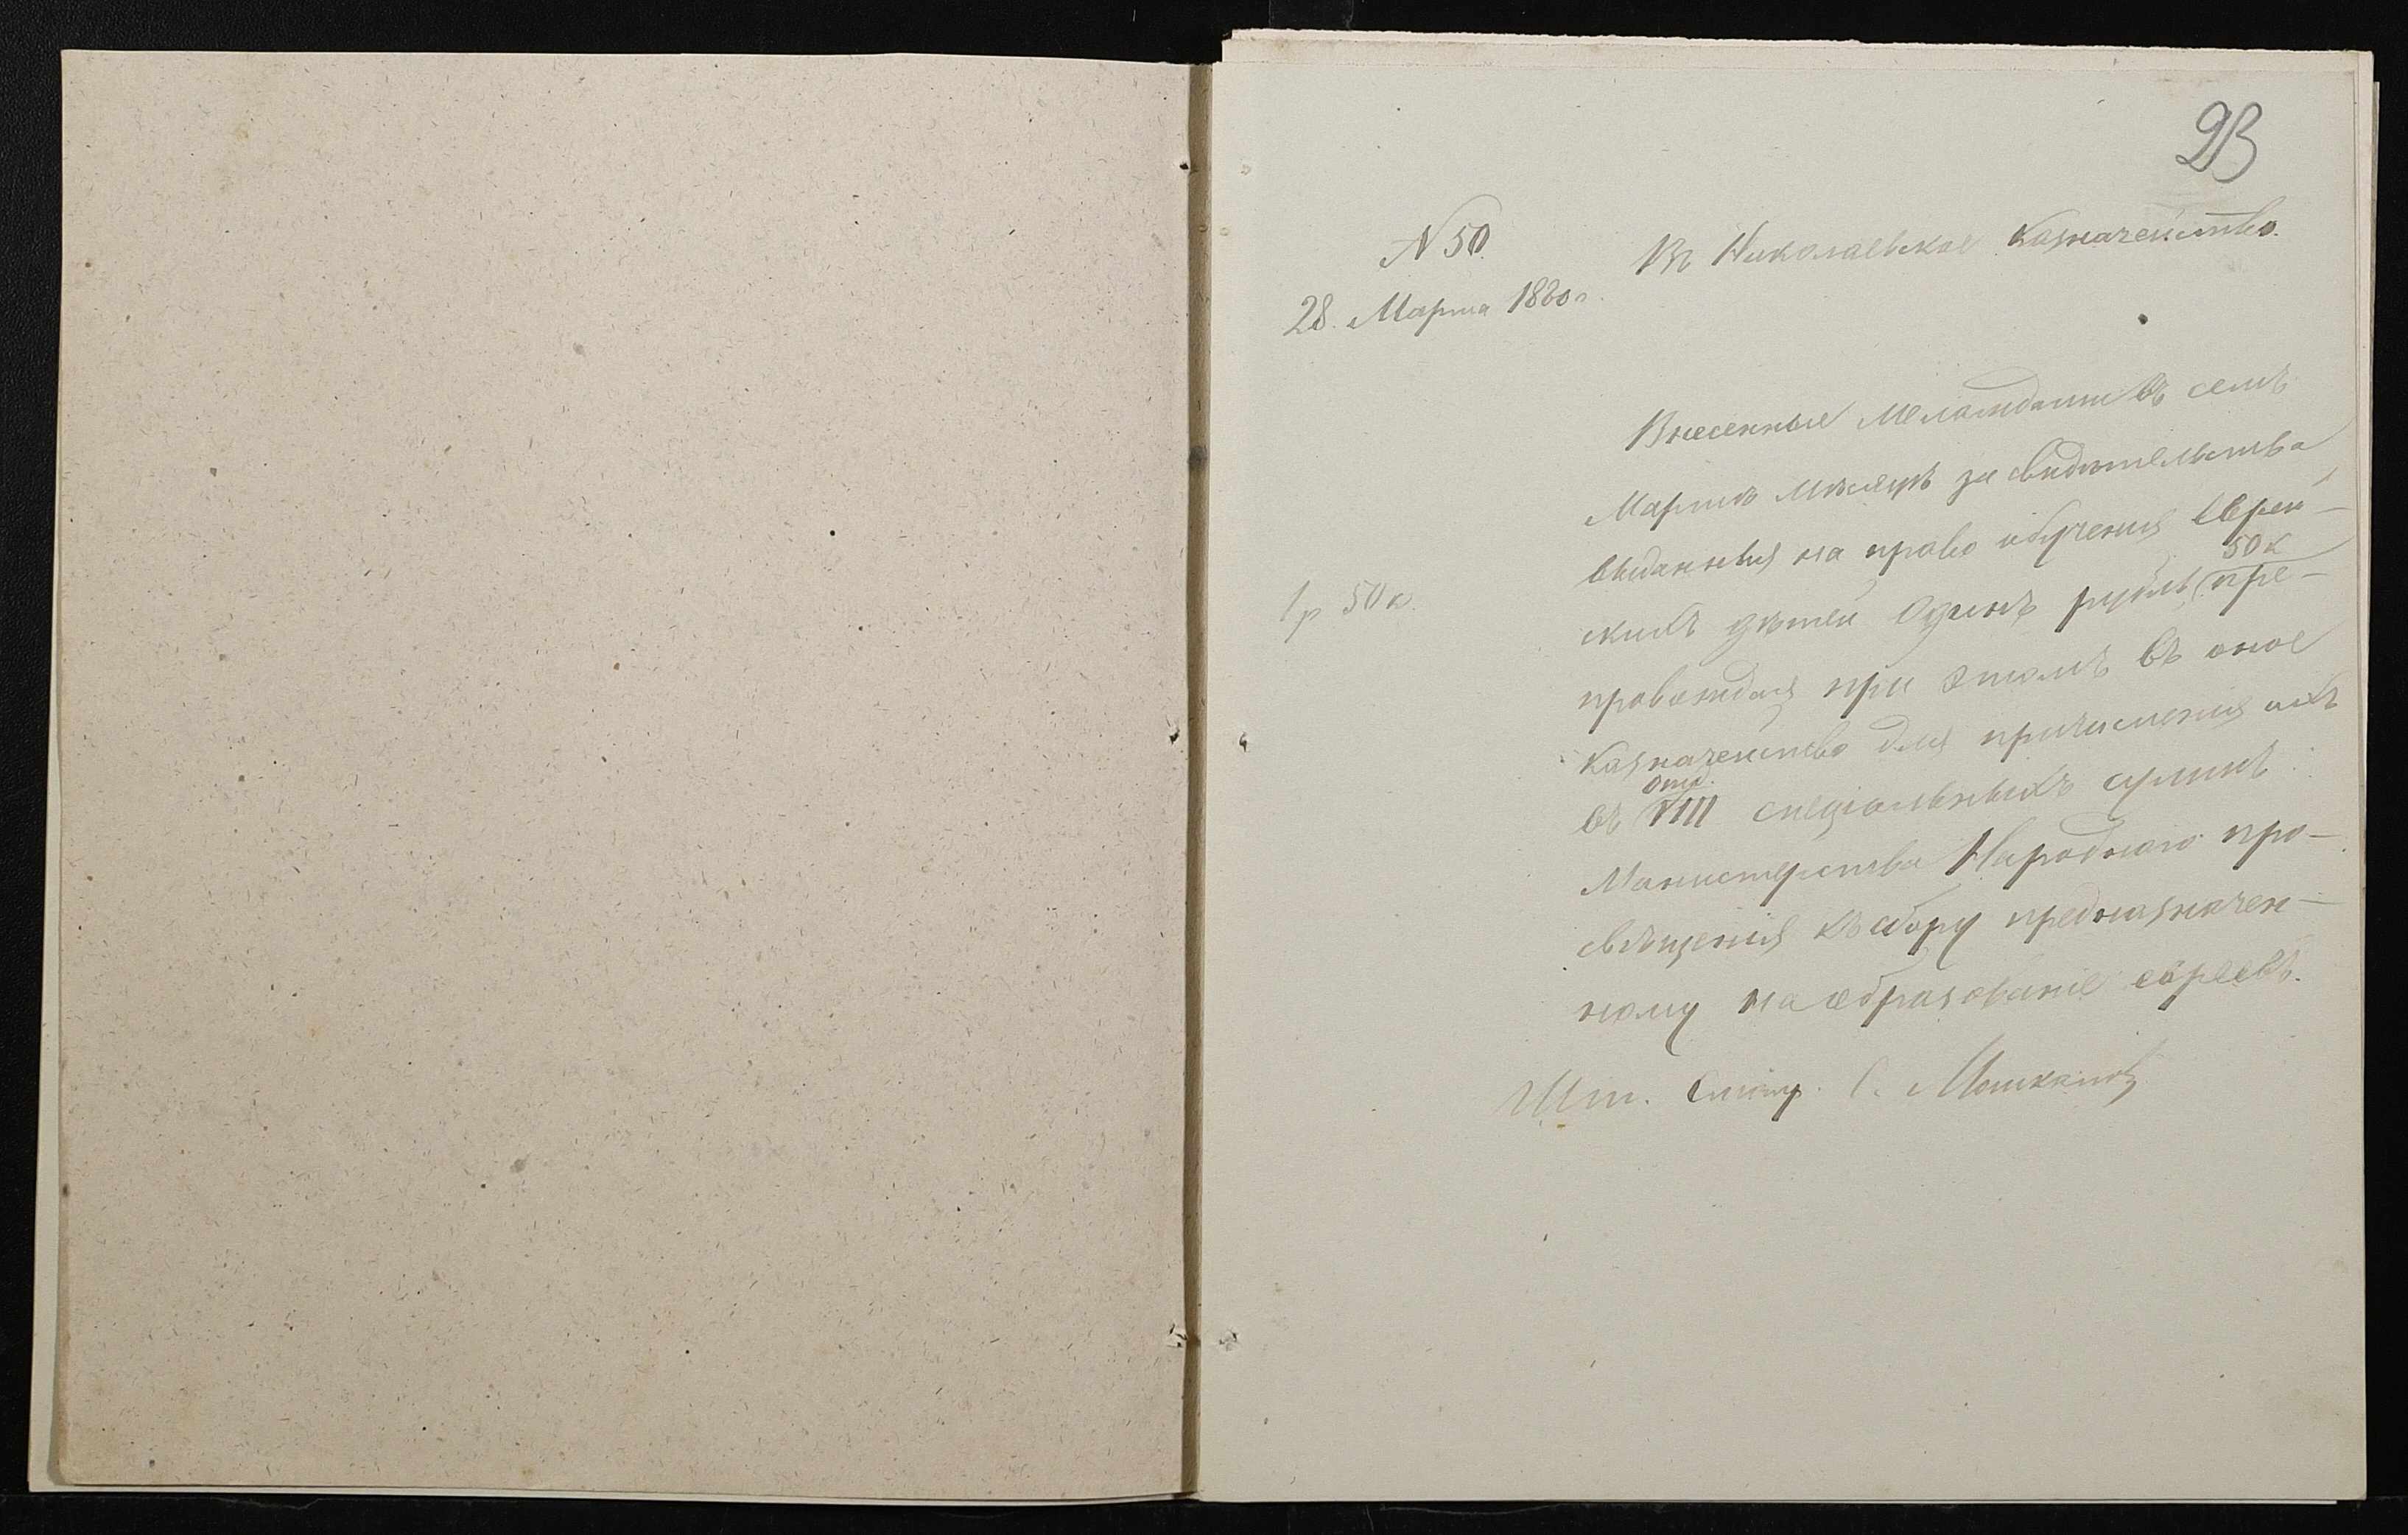 23
N 50.
28. Марта 1880 г.
Въ Николаевское Казначейство.
Внесенные Меламдами въ семъ
Мартѣ мѣсяцѣ за свидѣтельства
выданныя на право обученія еврей-
50 к
скихъ дѣтей Одинъ рубль пре-
1 р 50 к.
провождая при этомъ въ оное
Казначейство для причисленія ихъ
отд.
въ VIII спеціальныхъ суммъ
Министерства Народного про-
свѣщенія къ сбору предназначен-
ному на образованіе евреевъ.
Шт. Смотр. С.